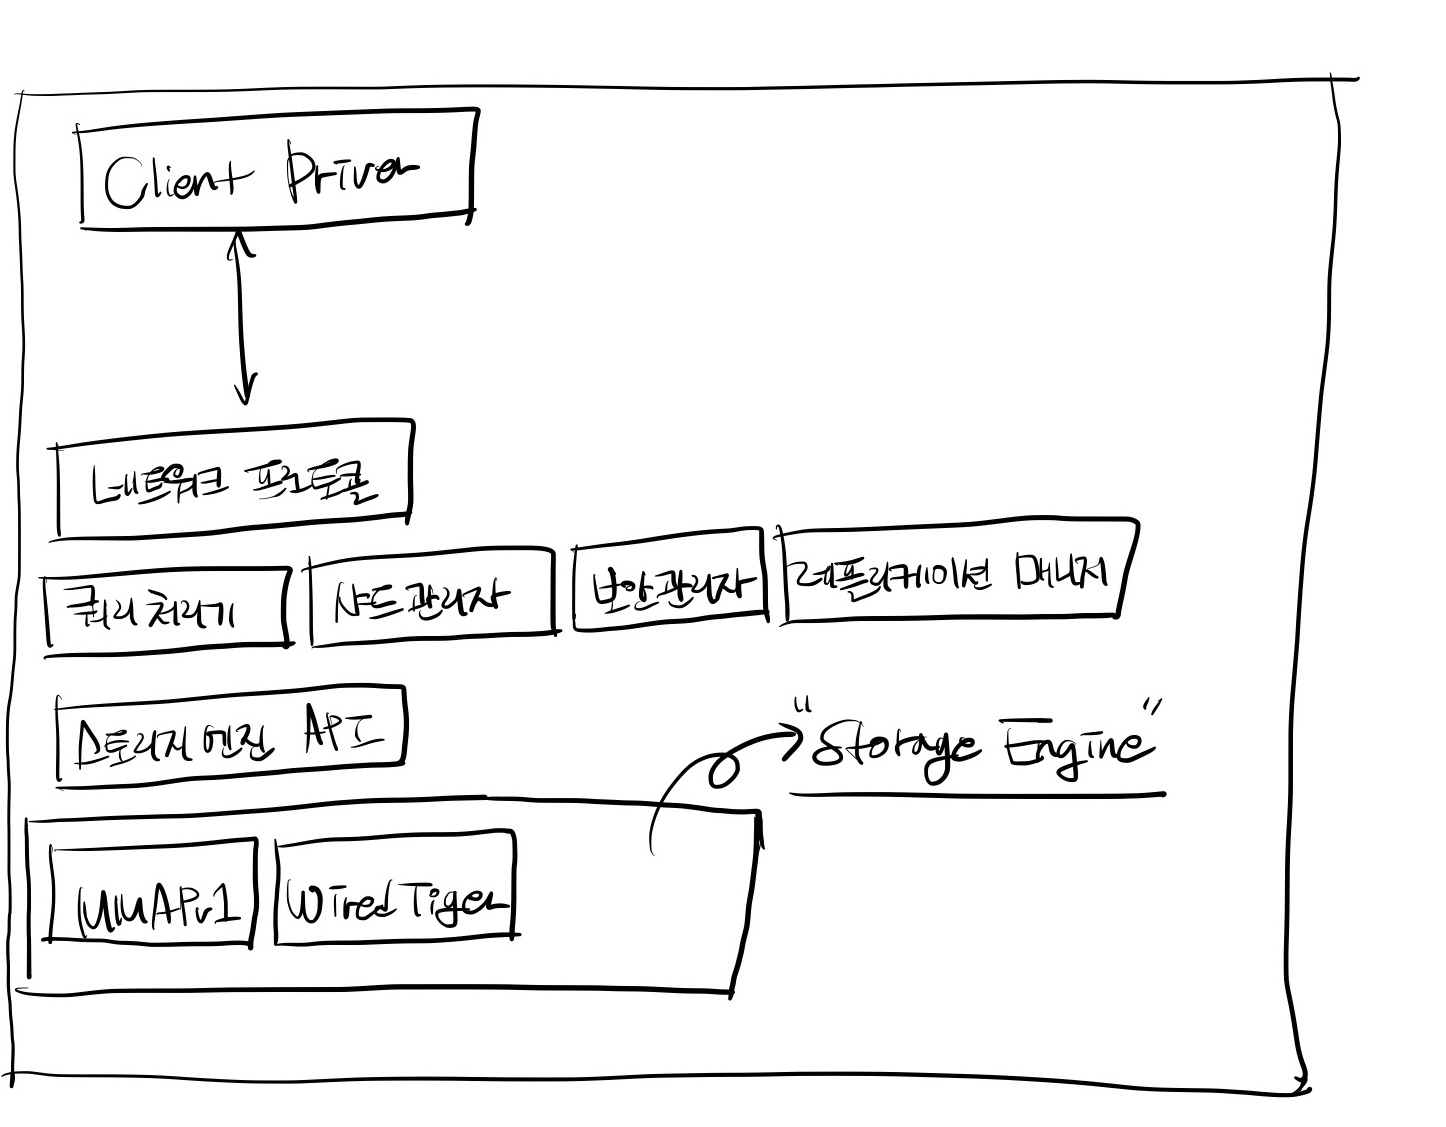 Client Driver
네트워크 프로토콜
쿼리 처리기
샤드 관리자
보안 관리자
레플리케이션 매니저
스토리지 엔진 API
"Storage Engine"
MMAPv1
WiredTiger